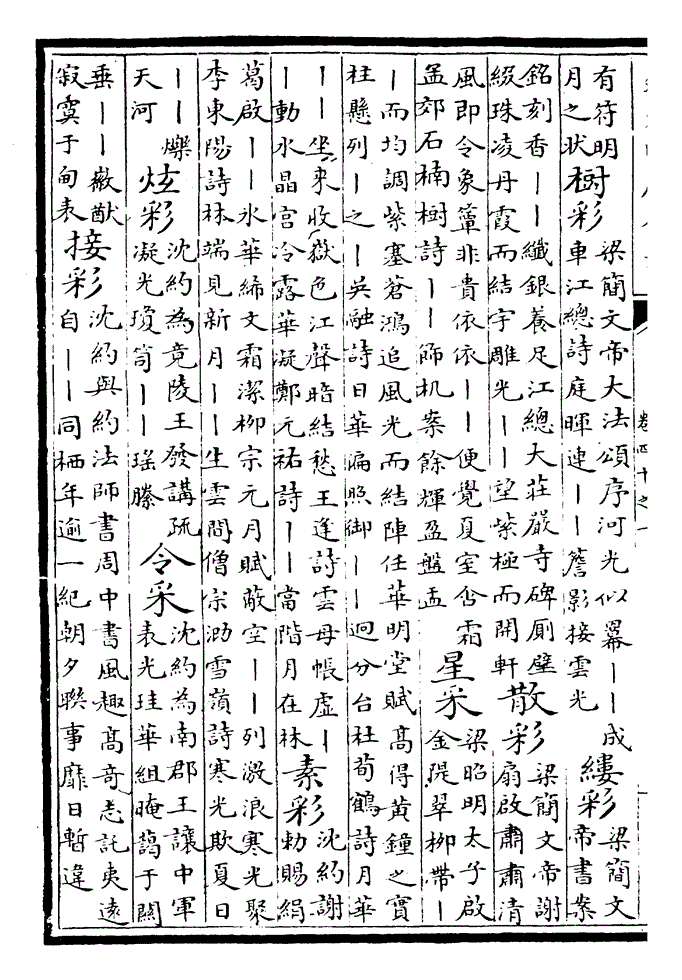 卷四十之一
有符明
月之狀
樹彩
梁簡文帝大法頌序河光似羃——成
車江總詩庭暉連——簷影接雲光
縷彩
梁簡文
帝書案
銘刻香——纖銀養足江總大莊嚴寺碑厠壁
綴珠凌丹霞而結宇雕光——望紫極而開軒
散彩
梁簡文帝謝
扇啟肅肅清
風即令象簟非貴依依——便覺夏室含霜
孟郊石楠樹詩——飾机案餘輝盈盤盂
星采
梁昭明太子啟
金隄翠柳帶—
—而均調紫塞蒼鴻追風光而結陣任華明堂賦高得黃鐘之寶
柱懸列—之—吳融詩日華徧照御——迥分台杜荀鶴詩月華
——坐來收嶽色江聲暗結愁王逢詩雲母帳虛—
—動水晶宮冷露華凝鄭元祐詩——當階月在林
素彩
沈約謝
勅賜絹
葛啟——氷華締文霜潔柳宗元月賦蔽空——列激浪寒光聚
李東陽詩林端見新月——生雲間僧宗泐雪嶺詩寒光欺夏日
——爍
天河
炫彩
沈約為竟陵王發講疏
凝光瓊笥——瑤縢
令采
沈約為南郡王讓中軍
表光珪華組晻藹于闗
垂——徽猷
寂寞于甸表
接彩
沈約與約法師書周中書風趣高奇志託夷遠
自——同栖年逾一紀朝夕聯事靡日暫違